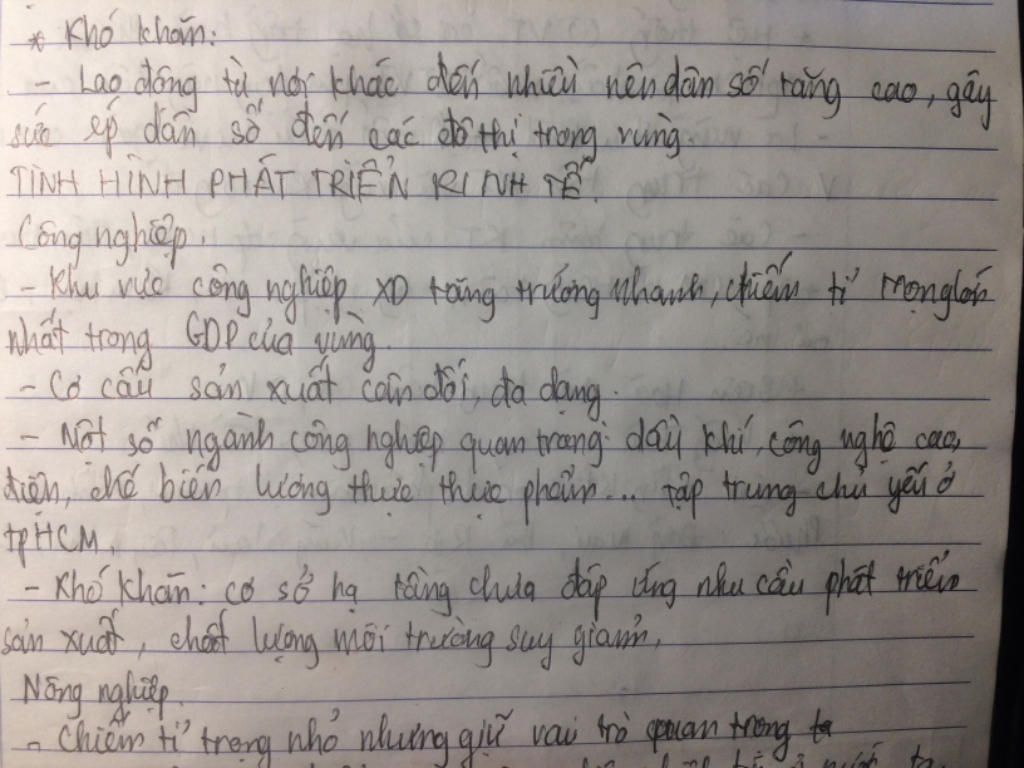 * Khó khăn:
- Lao động từ nơi khác đến nhiều nên dân số tăng cao, gây
sức ép dân số đến các đô thị trong vùng.
TÌNH HÌNH PHÁT TRIỂN KINH TẾ.
Công nghiệp.
- Khu vực công nghiệp XD tăng trưởng nhanh, chiếm tỉ trọng lớn
nhất trong GDP của vùng.
- Cơ cấu sản xuất cân đối, đa dạng.
- Một số ngành công nghiệp quan trọng: dầu khí, công nghệ cao,
điện, chế biến lương thực thực phẩm... tập trung chủ yếu ở
tpHCM.
- Khó khăn: cơ sở hạ tầng chưa đáp ứng nhu cầu phát triển
sản xuất, chất lượng môi trường suy giảm.
Nông nghiệp.
- Chiếm tỉ trọng nhỏ nhưng giữ vai trò quan trọng